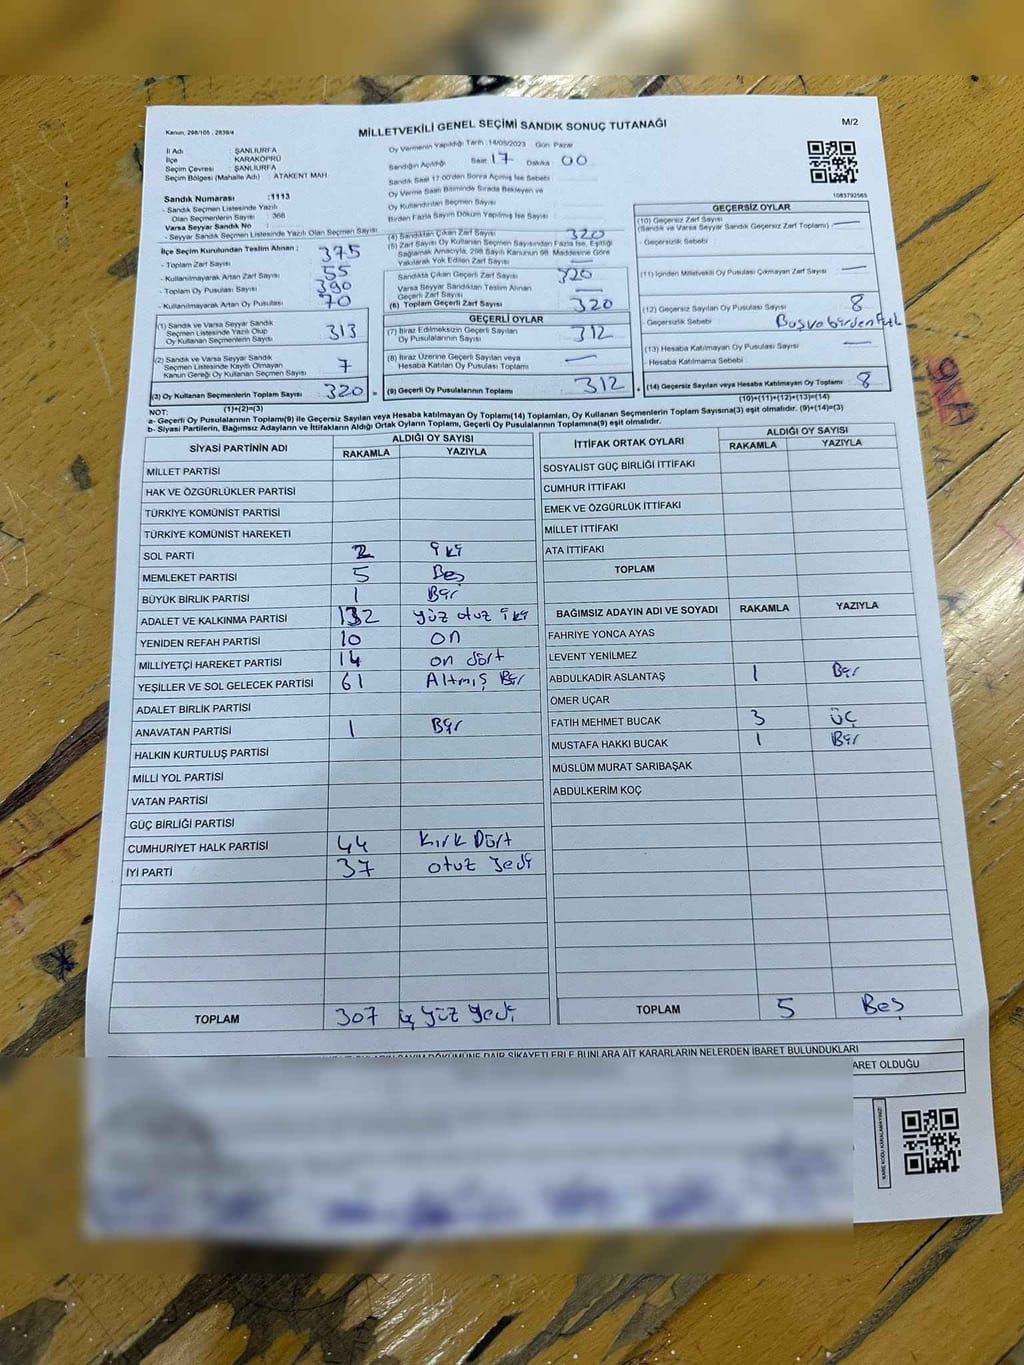 Kanun, 298/105 , 2839/4
MİLLETVEKİLİ GENEL SEÇİMİ SANDIK SONUÇ TUTANAĞI
M/2
İl Adı : ŞANLIURFA
İlçe : KARAKÖPRÜ
Seçim Çevresi : ŞANLIURFA
Seçim Bölgesi (Mahalle Adı) : ATAKENT MAH
Oy Vermenin Yapıldığı Tarih :14/05/2023 Gün Pazar
Sandığın Açıldığı Saat 17 Dakika 00
Sandık Saat 17:00'den Sonra Açılmış İse Sebebi :
Oy Verme Saati Bitiminde Sırada Bekleyen ve
Oy Kullandırılan Seçmen Sayısı
Birden Fazla Sayım Döküm Yapılmış İse Sayısı
1083792565
Sandık Numarası :1113
- Sandık Seçmen Listesinde Yazılı
Olan Seçmenlerin Sayısı : 368
Varsa Seyyar Sandık No :
- Seyyar Sandık Seçmen Listesinde Yazılı Olan Seçmen Sayısı
İlçe Seçim Kurulundan Teslim Alınan :
- Toplam Zarf Sayısı 375
- Kullanılmayarak Artan Zarf Sayısı 55
- Toplam Oy Pusulası 390
- Kullanılmayarak Artan Oy Pusulası 70
(1) Sandık ve Varsa Seyyar Sandık
Seçmen Listesinde Yazılı Olup
Oy Kullanan Seçmenlerin Sayısı 313
(2) Sandık ve Varsa Seyyar Sandık
Seçmen Listesinde Kayıtlı Olmayan
Kanun Gereği Oy Kullanan Seçmen Sayısı 7
(3) Oy Kullanan Seçmenlerin Toplam Sayısı 320 =
(1)+(2)=(3)
(4) Sandıktan Çıkan Zarf Sayısı 320
(5) Zarf Sayısı Oy Kullanan Seçmen Sayısından Fazla İse, Eşitliği
Sağlamak Amacıyla, 298 Sayılı Kanunun 98. Maddesine Göre
Yakılarak Yok Edilen Zarf Sayısı —
Sandıkta Çıkan Geçerli Zarf Sayısı 320
Varsa Seyyar Sandıktan Teslim Alınan
Geçerli Zarf Sayısı —
(6) Toplam Geçerli Zarf Sayısı 320
GEÇERLİ OYLAR
(7) İtiraz Edilmeksizin Geçerli Sayılan
Oy Pusulası Sayısı 312
(8) İtiraz Üzerine Geçerli Sayılan veya
Hesaba Katılan Oy Pusulası Toplamı —
(9) Geçerli Oy Pusulalarının Toplamı 312 +
GEÇERSİZ OYLAR
(10) Geçersiz Zarf Sayısı —
(Sandık ve Varsa Seyyar Sandık Geçersiz Zarf Toplamı)
- Geçersizlik Sebebi :
(11) İçinden Milletvekili Oy Pusulası Çıkmayan Zarf Sayısı —
(12) Geçersiz Sayılan Oy Pusulası Sayısı 8
- Geçersizlik Sebebi : Boş ve birden
(13) Hesaba Katılmayan Oy Pusulası Sayısı —
- Hesaba Katılmama Sebebi :
(14) Geçersiz Sayılan veya Hesaba Katılmayan Oy Toplamı 8
(10)+(11)+(12)+(13)=(14)
NOT:
a- Geçerli Oy Pusulalarının Toplamı(9) ile Geçersiz Sayılan veya Hesaba katılmayan Oy Toplamı(14) Toplamları, Oy Kullanan Seçmenlerin Toplam Sayısına(3) eşit olmalıdır. (9)+(14)=(3)
b- Siyasi Partilerin, Bağımsız Adayların ve İttifakların Aldığı Ortak Oyların Toplamı, Geçerli Oy Pusulalarının Toplamına(9) eşit olmalıdır.
SİYASİ PARTİNİN ADI ALDIĞI OY SAYISI
RAKAMLA YAZIYLA
MİLLET PARTİSİ
HAK VE ÖZGÜRLÜKLER PARTİSİ
TÜRKİYE KOMÜNİST PARTİSİ
TÜRKİYE KOMÜNİST HAREKETİ
SOL PARTİ 2 iki
MEMLEKET PARTİSİ 5 Beş
BÜYÜK BİRLİK PARTİSİ 1 Bir
ADALET VE KALKINMA PARTİSİ 132 yüz otuz iki
YENİDEN REFAH PARTİSİ 10 on
MİLLİYETÇİ HAREKET PARTİSİ 14 on dört
YEŞİLLER VE SOL GELECEK PARTİSİ 61 Altmış Bir
ADALET BİRLİK PARTİSİ
ANAVATAN PARTİSİ 1 Bir
HALKIN KURTULUŞ PARTİSİ
MİLLİ YOL PARTİSİ
VATAN PARTİSİ
GÜÇ BİRLİĞİ PARTİSİ
CUMHURİYET HALK PARTİSİ 44 Kırk Dört
İYİ PARTİ 37 otuz yedi
TOPLAM 307 üç yüz yedi
İTTİFAK ORTAK OYLARI ALDIĞI OY SAYISI
RAKAMLA YAZIYLA
SOSYALİST GÜÇ BİRLİĞİ İTTİFAKI
CUMHUR İTTİFAKI
EMEK VE ÖZGÜRLÜK İTTİFAKI
MİLLET İTTİFAKI
ATA İTTİFAKI
TOPLAM
BAĞIMSIZ ADAYIN ADI VE SOYADI RAKAMLA YAZIYLA
FAHRİYE YONCA AYAS
LEVENT YENİLMEZ
ABDULKADİR ASLANTAŞ 1 Bir
ÖMER UÇAR
FATİH MEHMET BUCAK 3 ÜÇ
MUSTAFA HAKKI BUCAK 1 Bir
MÜSLÜM MURAT SARIBAŞAK
ABDULKERİM KOÇ
TOPLAM 5 Beş
SAYIM DÖKÜMÜNE DAİR ŞİKAYETLERLE BUNLARA AİT KARARLARIN NELERDEN İBARET BULUNDUKLARI
ARET OLDUĞU
KARE KODU KARALAMAYINIZ!